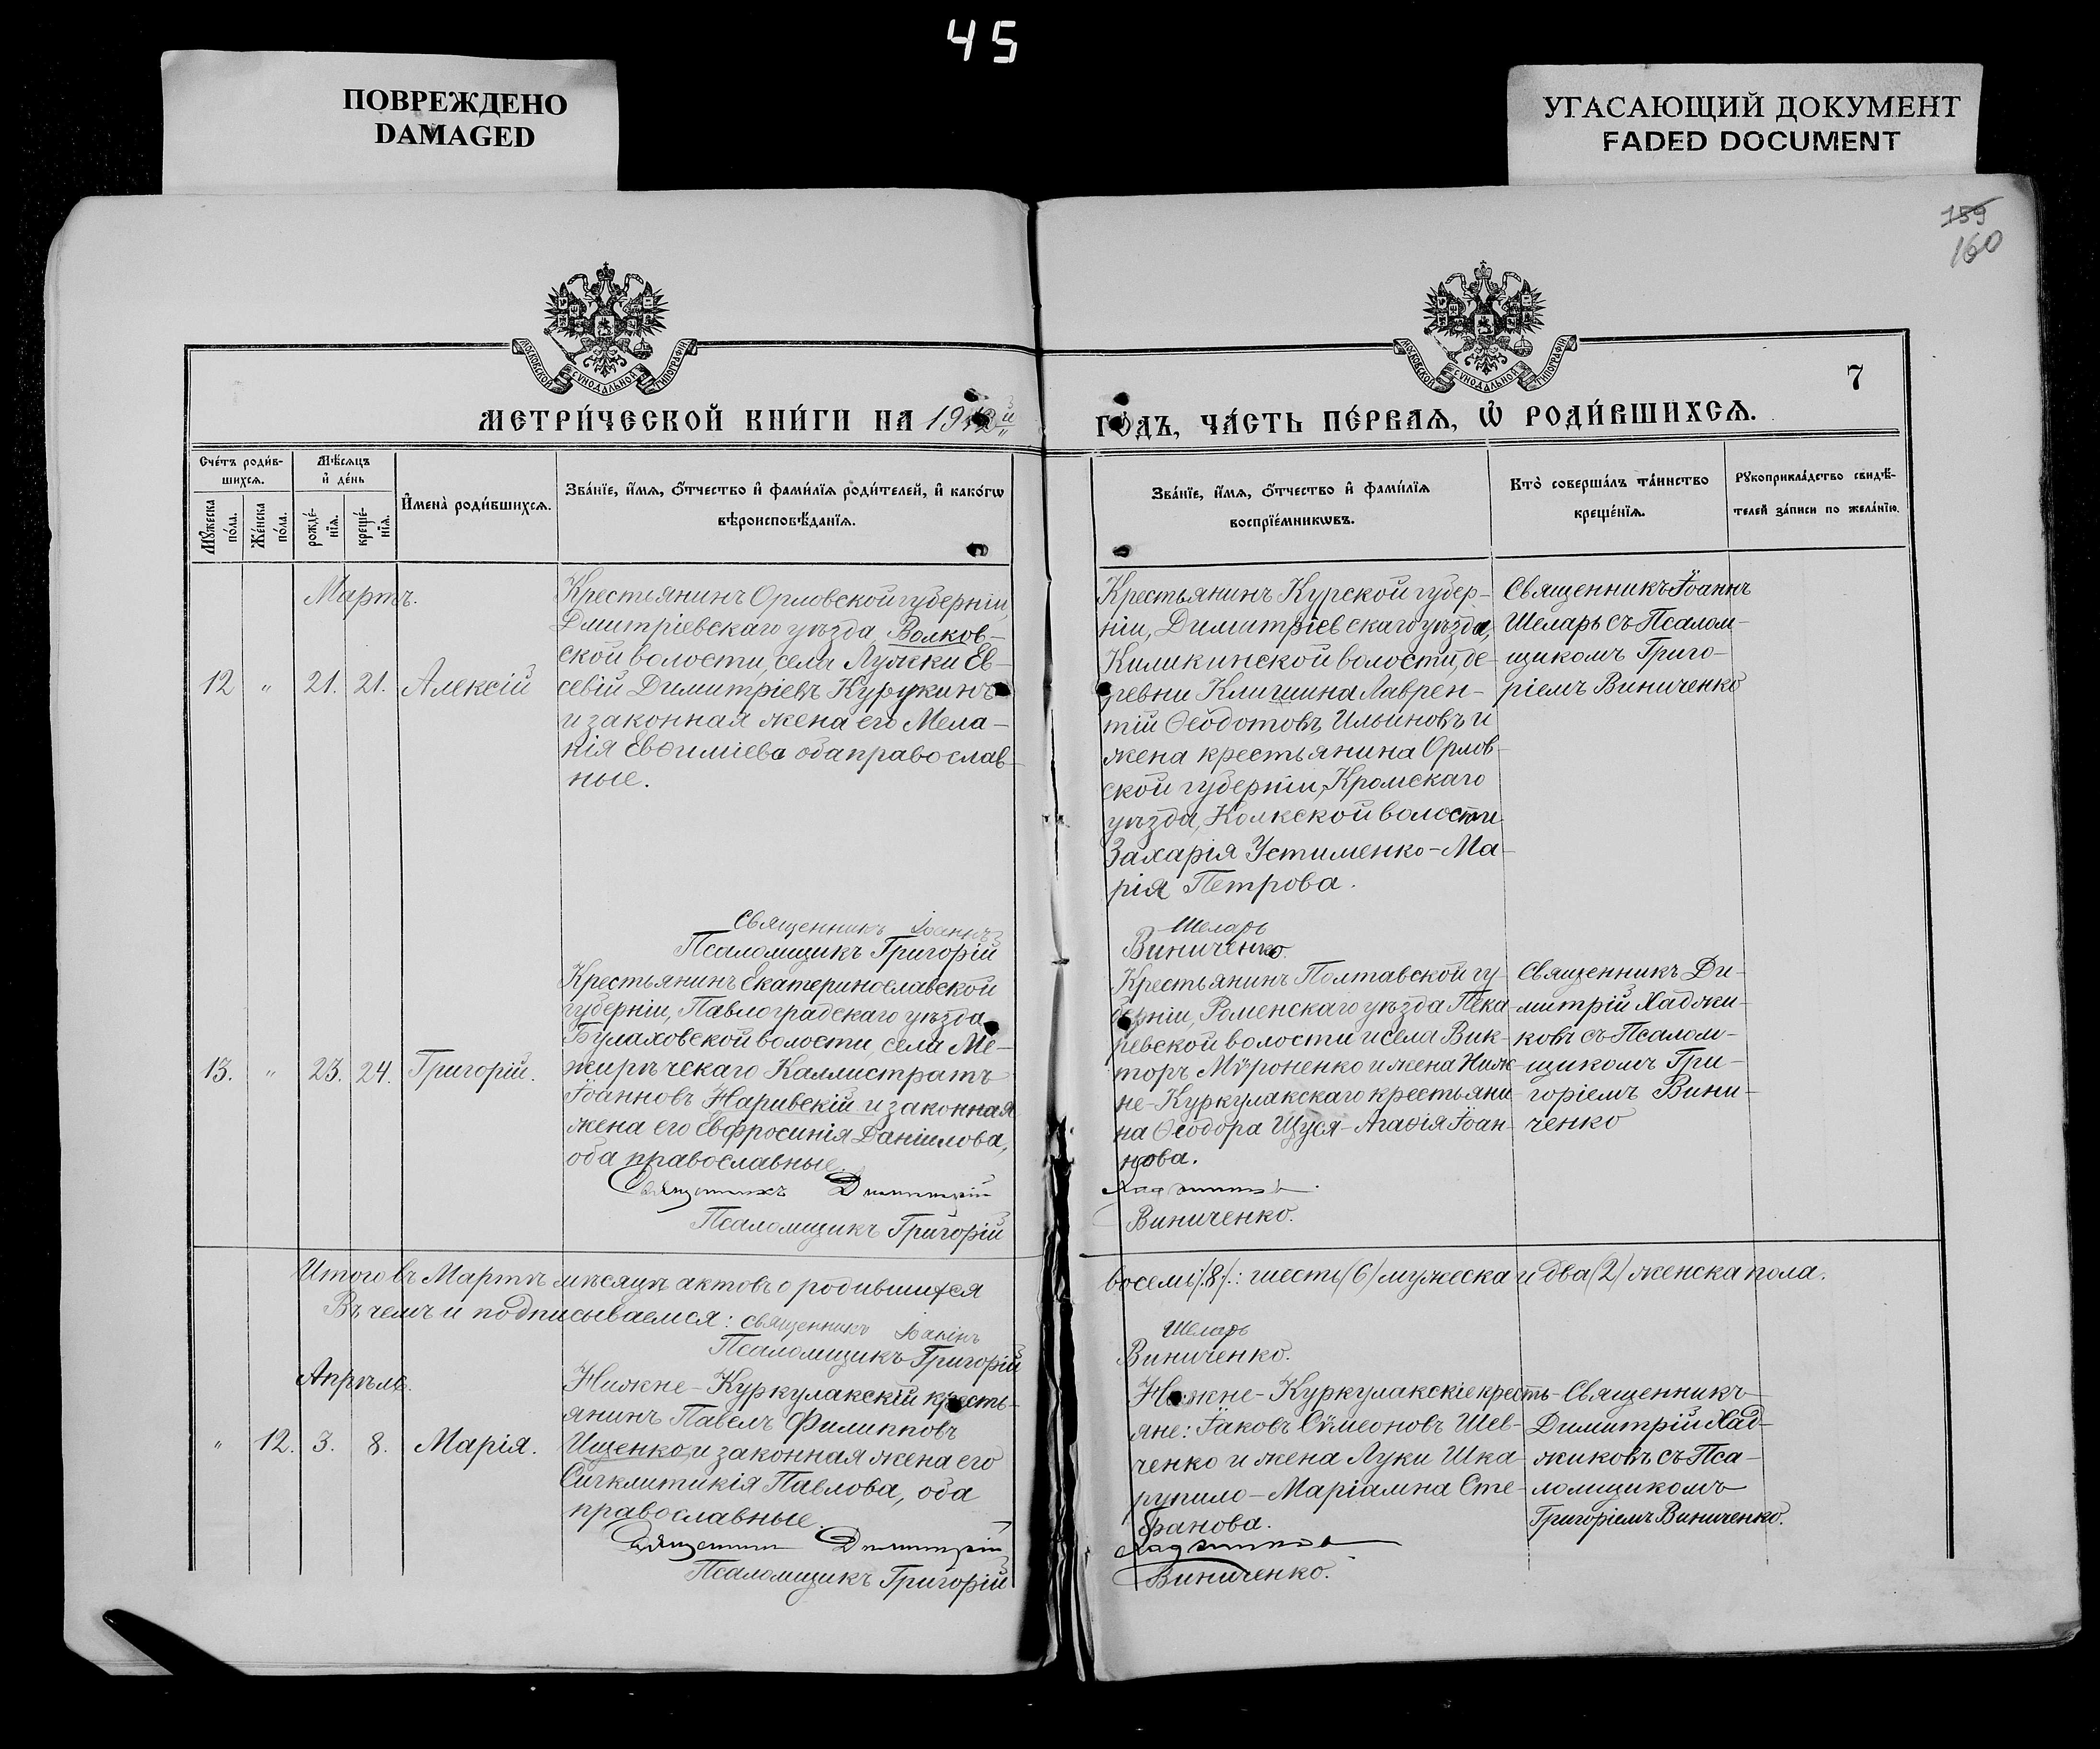 45
ПОВРЕЖДЕНО
DAMAGED
УГАСАЮЩИЙ ДОКУМЕНТ
FADED DOCUMENT
159
160
МОСКОВСКОЙ СѴНОДАЛЬНОЙ ТИПОГРАФІИ
МОСКОВСКОЙ СѴНОДАЛЬНОЙ ТИПОГРАФІИ
7
МЕТРИ́ЧЕСКОЙ КНИ́ГИ НА 19
ГО́ДЪ, ЧА́СТЬ ПЕ́РВАЯ, Ѡ҆ РОДИ́ВШИХСЯ.
Сче́тъ роди́в-
шихся.
Мѣ́сяцъ
и҆ де́нь
Мꙋ́жеска по́ла.
Же́нска по́ла.
рожде́-
нїя.
креще́-
нїя.
И҆мена̀ роди́вшихся.
Зва́нїе, и҆́мя, ѻ҆́тчество и҆ фами́лїя роди́телей, и҆ како́гѡ
вѣроисповѣ́данїя.
Зва́нїе, и҆́мя, ѻ҆́тчество и҆ фами́лїя
воспрїе́мникѡвъ.
Кто̀ соверша́лъ та́инство
креще́нїя.
Рꙋкоприкла́дство свидѣ́-
телей за́писи по жела́нїю.
Мартъ.
12 " 21. 21. Алексій
Крестьянинъ Орловской губерніи,
Дмитріевскаго уѣзда, Волков-
ской волости, села Лужки Ев-
севій Димитріевъ Курукинъ
и законная жена его Мела-
нія Евѳиміева оба православ-
ные.
Крестьянинъ Курской губер-
ніи, Димитріевскаго уѣзда,
Киликинской волости, де-
ревни Клишина Лаврен-
тій Ѳеодотовъ Ильиновъ и
жена крестьянина Орлов-
ской губерніи, Кромскаго
уѣзда, Колкской волости
Захарія Устименко-Ма-
рія Петрова.
Священникъ Іоаннъ
Шеларь съ Псалом-
щикомъ Григо-
ріемъ Виниченко
Священникъ Іоаннъ Шеларь
Псаломщикъ Григорій Виниченко.
13. " 23. 24. Григорій.
Крестьянинъ Екатеринославской
губерніи, Павлоградскаго уѣзда
Булаховской волости, села Ме-
жирѣчскаго Каллистратъ
Іоанновъ Наривскій и законная
жена его Евфросинія Даніилова,
оба православные.
Крестьянинъ Полтавской гу-
берніи, Роменскаго уѣзда Пека-
ревской волости и села Вик-
торъ Мѵроненко и жена Ниж-
не-Куркулакскаго крестьяни-
на Ѳеодора Щуся-Агаѳія Іоан-
нова.
Священникъ Ди-
митрій Хаджи-
ковъ съ Псалом-
щикомъ Гри-
горіемъ Вини-
ченко
Священникъ Димитрій Хаджиковъ
Псаломщикъ Григорій Виниченко.
Итого въ Мартѣ мѣсяцѣ актовъ о родившихся восемь /8/.: шесть (6) мужеска и два (2) женска пола.
Въ чемъ и подписываемся: Священникъ Іоаннъ Шеларь
Псаломщикъ Григорій Виниченко.
Апрѣль.
" 12. 3. 8. Марія.
Нижне-Куркулакскій кресть-
янинъ Павелъ Филипповъ
Ищенко и законная жена его
Сигклитикія Павлова, оба
православные.
Нижне-Куркулакскіе кресть-
яне: Іаковъ Сѵмеоновъ Шев-
ченко и жена Луки Шка-
рупило-Маріамна Сте-
фанова.
Священникъ
Димитрій Хад-
жиковъ съ Пса-
ломщикомъ
Григоріемъ Виниченко.
Священникъ Димитрій Хаджиковъ
Псаломщикъ Григорій Виниченко.